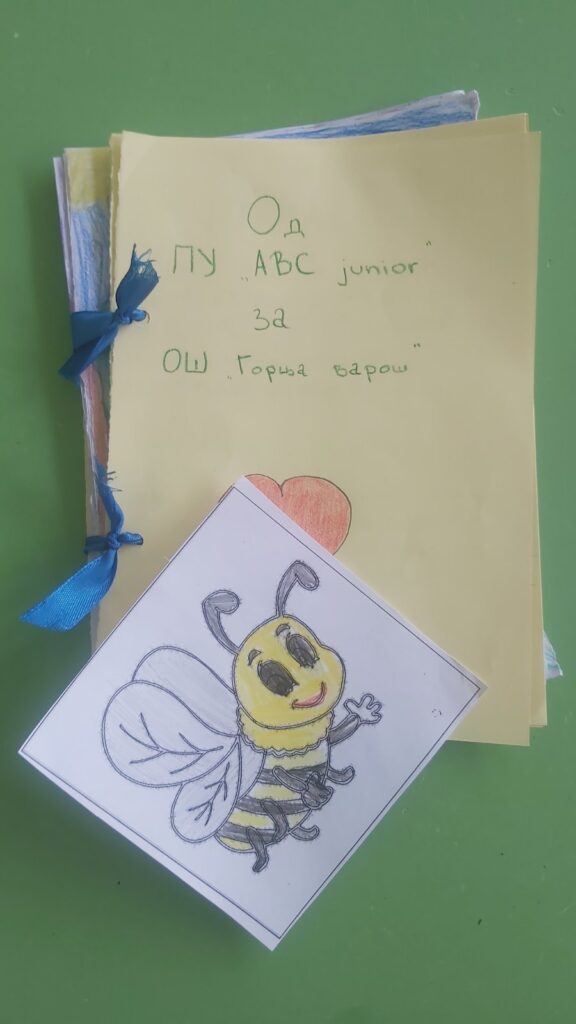 Од
ПУ „ABC junior“
за
ОШ „Горња варош“